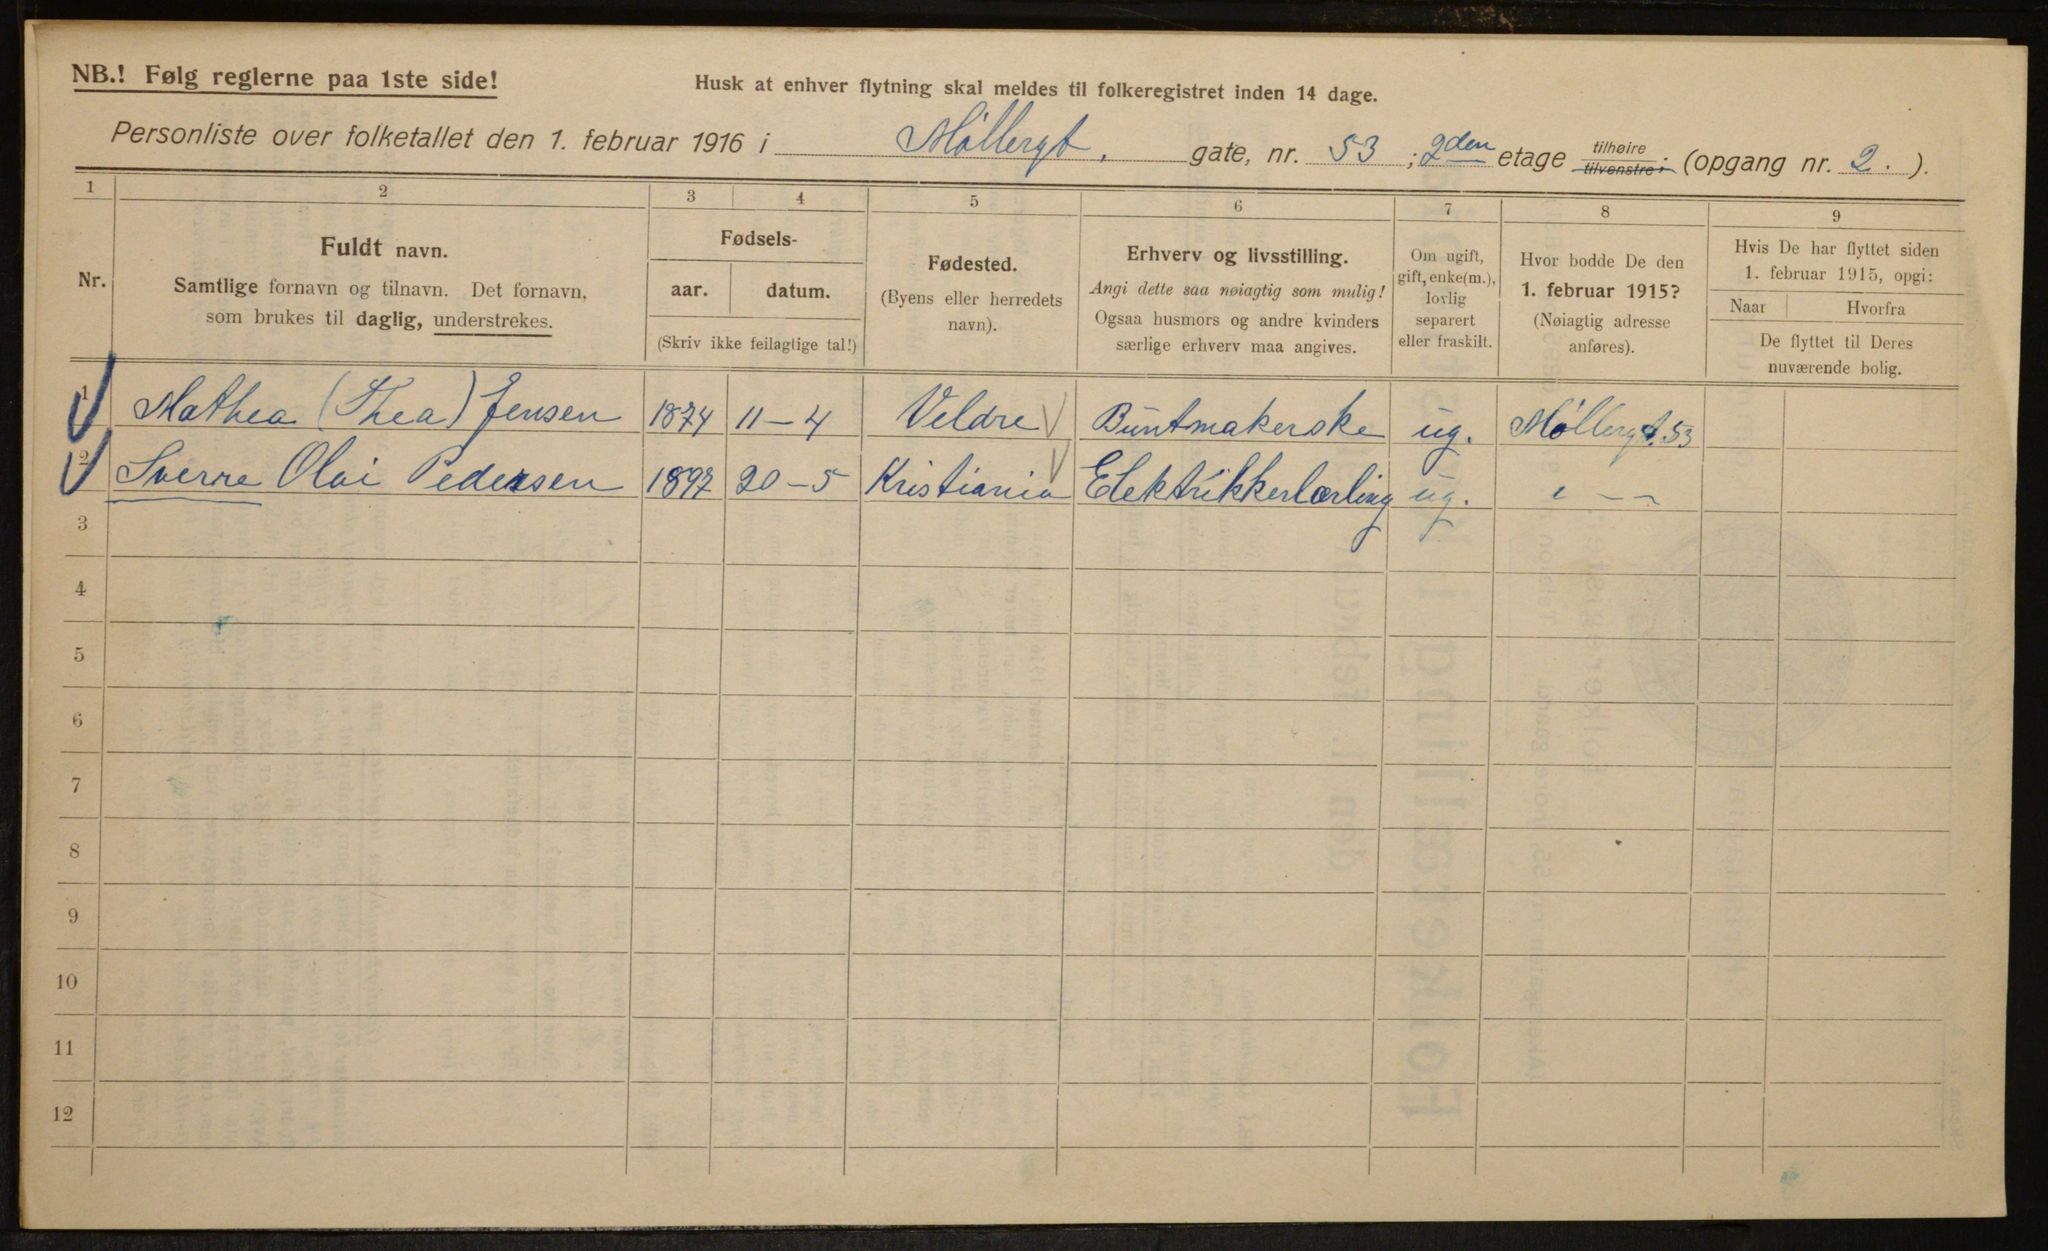 NB.! Følg reglerne paa 1ste side!
Husk at enhver flytning skal meldes til folkeregistret inden 14 dage.
Personliste over folketallet den 1. februar 1916 i Møllergt. gate, nr. 53 ; 2den etage tilhøire tilvenstre; (opgang nr. 2. ).
1 2 3 4 5 6 7 8 9
Nr.
Fuldt navn.
Samtlige fornavn og tilnavn. Det fornavn,
som brukes til daglig, understrekes.
Fødsels-
aar. datum.
(Skriv ikke feilagtige tal!)
Fødested.
(Byens eller herredets
navn).
Erhverv og livsstilling.
Angi dette saa nøiagtig som mulig!
Ogsaa husmors og andre kvinders
særlige erhverv maa angives.
Om ugift,
gift, enke(m.),
lovlig
separert
eller fraskilt.
Hvor bodde De den
1. februar 1915?
(Nøiagtig adresse
anføres).
Hvis De har flyttet siden
1. februar 1915, opgi:
Naar Hvorfra
De flyttet til Deres
nuværende bolig.
1 Mathea (Thea) Jensen 1874 11-4 Veldre Buntmakerske ug. Møllergt. 53
2 Sverre Olai Pedersen 1897 20-5 Kristiania Elektrikkerlærling ug. " — "
3
4
5
6
7
8
9
10
11
12